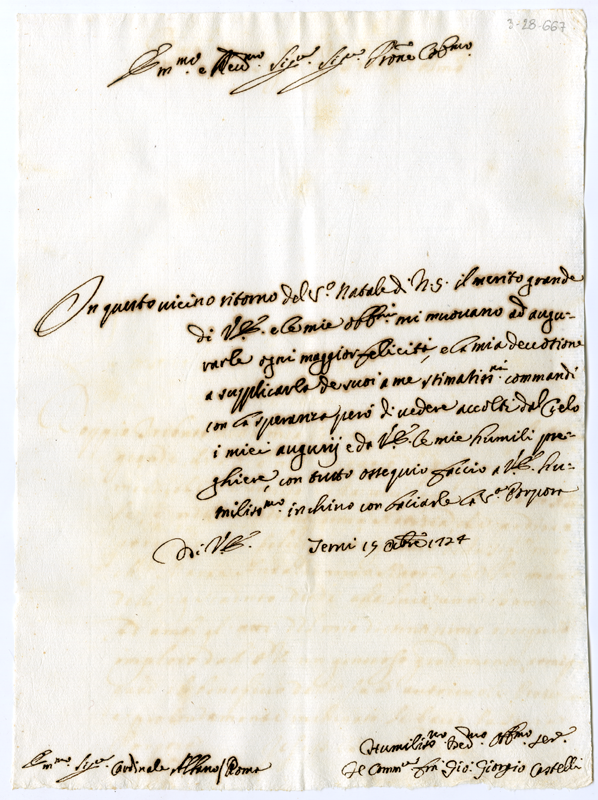 3-28-667
Em.mo e Rev.mo Sig.re Sig.re P.rone Col.mo
In questo vicino ritorno del S.o Natale di N.S. il merito grande
di V.E. e le mie obb.ni mi muovano ad augu-
rarle ogni maggior felicità, e la mia devotione
a supplicarla de suoi a me stimatiss.mi commandi
con la speranza però di vedere accolti dal Cielo
i miei augurij e da V.E. le mie humili pre-
ghiere, con tutto ossequio faccio a V.E. hu-
miliss.mo inchino con baciarle la S.a Porpora
Di V.E. Terni 15 Xbre 1724
Humiliss.mo Dev.mo Obb.mo Ser.e
Em.mo Sig.re Cardinale Albano / Roma
Il Comm.re fra Gio: Giorgio Castelli